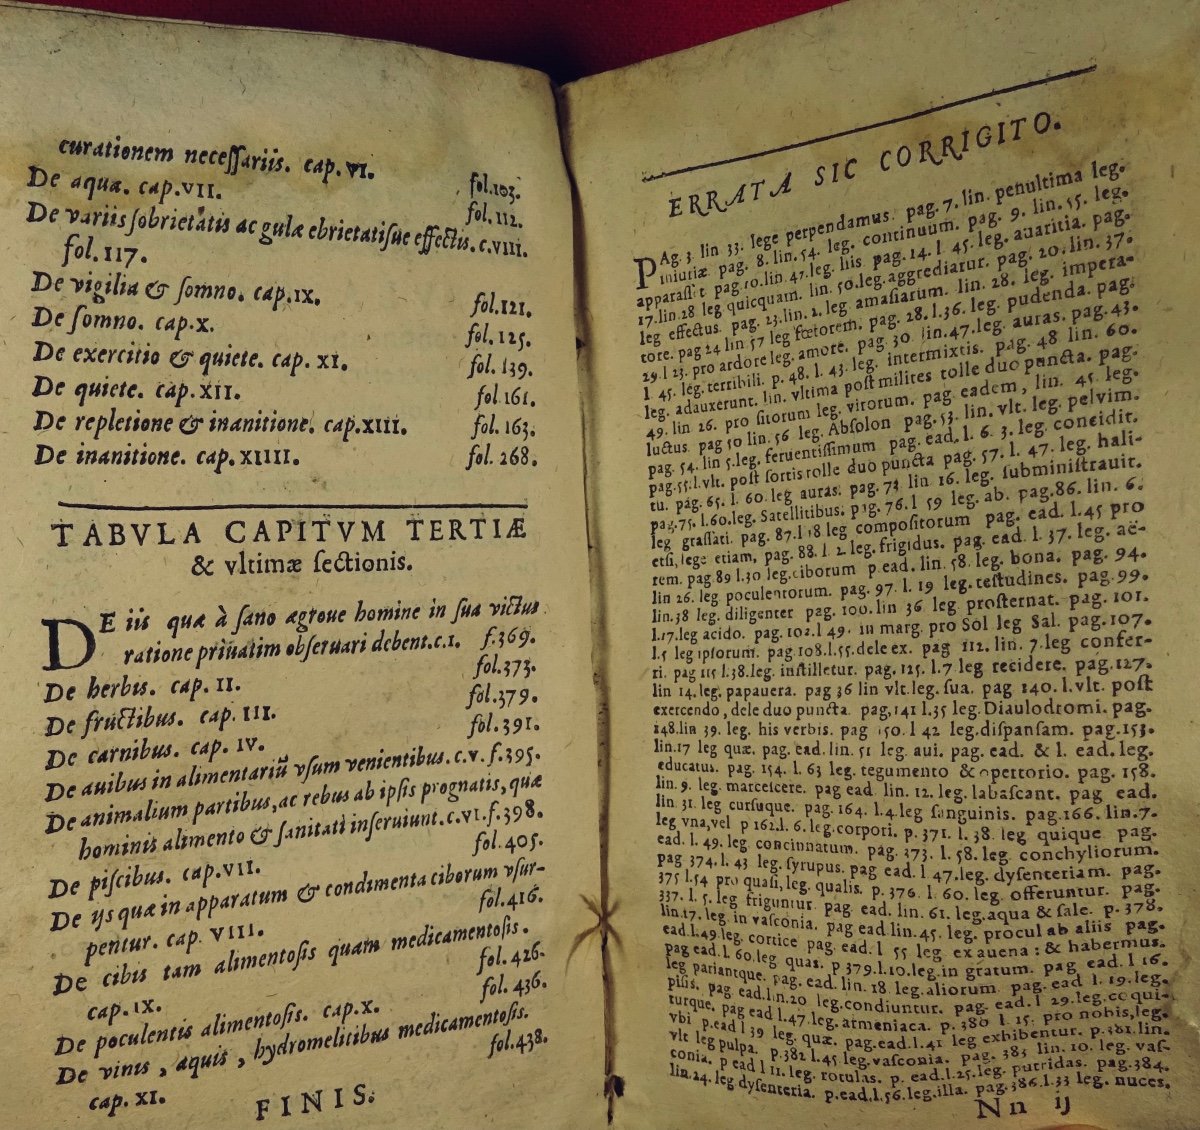 curationem necessariis. cap. VI.
fol. 103.
De aqua. cap. VII.
fol. 112.
De variis sobrietatis ac gulæ ebrietatisue effectis. c. VIII.
fol. 117.
De vigilia & somno. cap. IX.
fol. 121.
De somno. cap. X.
fol. 125.
De exercitio & quiete. cap. XI.
fol. 139.
De quiete. cap. XII.
fol. 161.
De repletione & inanitione. cap. XIII.
fol. 163.
De inanitione. cap. XIIII.
fol. 268.
TABVLA CAPITVM TERTIÆ
& vltimæ sectionis.
DE iis quæ à sano ægroue homine in sua victus
ratione priuatim obseruari debent. c. I. f. 369.
De herbis. cap. II.
fol. 373.
De fructibus. cap. III.
fol. 379.
De carnibus. cap. IV.
fol. 391.
De auibus in alimentariũ vsum venientibus. c. V. f. 395.
De animalium partibus, ac rebus ab ipsis prognatis, quæ
hominis alimento & sanitati inseruiunt. c. VI. f. 398.
De piscibus. cap. VII.
fol. 405.
De ijs quæ in apparatum & condimenta ciborum vsur-
pentur. cap. VIII.
fol. 416.
De cibis tam alimentosis quam medicamentosis.
cap. IX.
fol. 426.
De poculentis alimentosis. cap. X.
fol. 436.
De vinis, aquis, hydromelitibus medicamentosis.
cap. XI.
fol. 438.
FINIS.
ERRATA SIC CORRIGITO.
PAg. 3. lin 33. lege perpendamus. pag. 7. lin. penultima leg.
iniutiæ pag. 8. lin. 54. leg. continuum. pag. 9. lin. 55. leg.
pag 10. lin. 47. leg. iis pag. 14. l 45. leg. auaritia. pag.
17. lin. 28 leg quicquam. lin. 50. leg. aggrediatur. pag. 20. lin. 37.
leg effectus. pag. 23. lin. 2. leg amasiarum. lin. 28. leg. impera-
tore. pag 24 lin 57 leg fœtorem. pag. 28. l. 36. leg. pudenda. pag.
29. l 23. pro ardore leg. amore. pag 30 lin. 47. leg. auras. pag. 43.
l 45. leg. terribili. p. 48. l. 43. leg. intermixtis. pag. 48 lin. 60.
leg. adauxerunt. lin. vltima post milites tolle duo puncta. pag.
49. lin 26. pro sitorum leg. virorum. pag eadem, lin. 45 leg.
luctus. pag 50 lin. 56 leg. Absolon pag. 53. lin. vlt. leg. peluim.
pag. 54. lin 5. leg. feruentissimum pag. ead. l. 6. 3. leg. concidit.
pag. 55. l. vlt. post fortis tolle duo puncta pag. 57. l. 47. leg. hali-
tu. pag. 65. l. 60. leg auras. pag. lin 16. leg. subministrauit.
pag. 75. l. 60. leg. Satellitibus. pag. 76. l 59 leg. ab. pag. 86. lin. 6.
leg grassati. pag. 87. l 18 leg compositorum pag. ead. l. 45 pro
etsi, lege etiam, pag. 88. l. 2. leg. frigidus. pag. ead l. 37. leg. ac-
rem. pag 89 l. 30 leg. ciborum p. ead. lin. 58. leg. bona. pag. 94.
lin 26. leg poculentorum. pag. 97. l. 19 leg. testudines. pag. 99.
lin. 38 leg. diligenter pag. 100. lin 36 leg prosternat. pag. 101.
l. 17. leg acido. pag. 102. l 49. in marg. pro Sol leg Sal. pag. 107.
l. 5 leg ipsorum. pag. 108. l. 55. dele ex. pag 112. lin. 7. leg confer-
ri. pag 115 l. 38. leg. instilletur. pag. 125. l. 7 leg recidere. pag. 127.
lin 14. leg. papauera. pag 36 lin vlt. leg. sua. pag 140. l. vlt. post
exercendo, dele duo puncta. pag, 141 l. 35 leg. Diaulodromi. pag.
148. lin 39. leg. his verbis. pag 150. l 42 leg. dispansam. pag. 153.
lin. 17 leg quæ. pag. ead. lin. 51 leg. aui. pag. ead. & l. ead. leg.
educatus. pag. 154. l. 63 leg. tegumento & opertorio. pag. 158.
lin. 9. leg. marcescere. pag ead. lin. 12. leg. labascant. pag ead.
lin 31. leg cursuque. pag. 164. l. 4. leg sanguinis. pag. 166. lin. 7.
leg vna, vel p 162. l. 6. leg. corpori. p. 371. l. 38. leg quique pag.
ead. l. 49. leg concinnatum. pag. 373. l. 58. leg. conchyliorum.
pag 374. l. 43 leg. syrupus. pag ead l 47. leg. dysenteriam. pag.
375 l. 54 pro quasi, leg. qualis. p. 376. l 60. leg. offeruntur. pag.
337. l. 5. leg friguntur. pag ead. lin. 61. leg. aqua & sale. p. 378.
lin. 17. leg in vasconia. pag ead lin. 45. leg. procul ab aliis pag.
ead. l. 49. leg. cortice pag. ead. l 55 leg ex auena: & habermus.
pag ead. l. 60. leg quas. p. 379. l. 10. leg. in gratum. pag ead. l 16.
leg pariantque. pag. ead. lin. 18. leg. aliorum pag. ead l. 19. leg.
pisis. pag ead. lin. 20 leg. condiuntur. pag. ead. l 29. leg. coqui-
turque. pag ead l. 47. leg. armeniaca. p. 380 l. 15. pro nobis, leg.
vbi p. ead l 39 leg. quæ. pag. ead. l. 41 leg exhibentur. p. 381. lin.
vlt leg pulpa. p. 382 l. 45 leg. vasconia. pag. 383 lin. 10. leg. vas-
conia. p ead l 11. leg. rotulas. p. ead. l. 25. leg. putridas. pag. 384.
lin. 24. leg dysenteria. p. ead. l. 56. leg. illa. pag. 386. l. 33 leg. nuces.
Nn ij